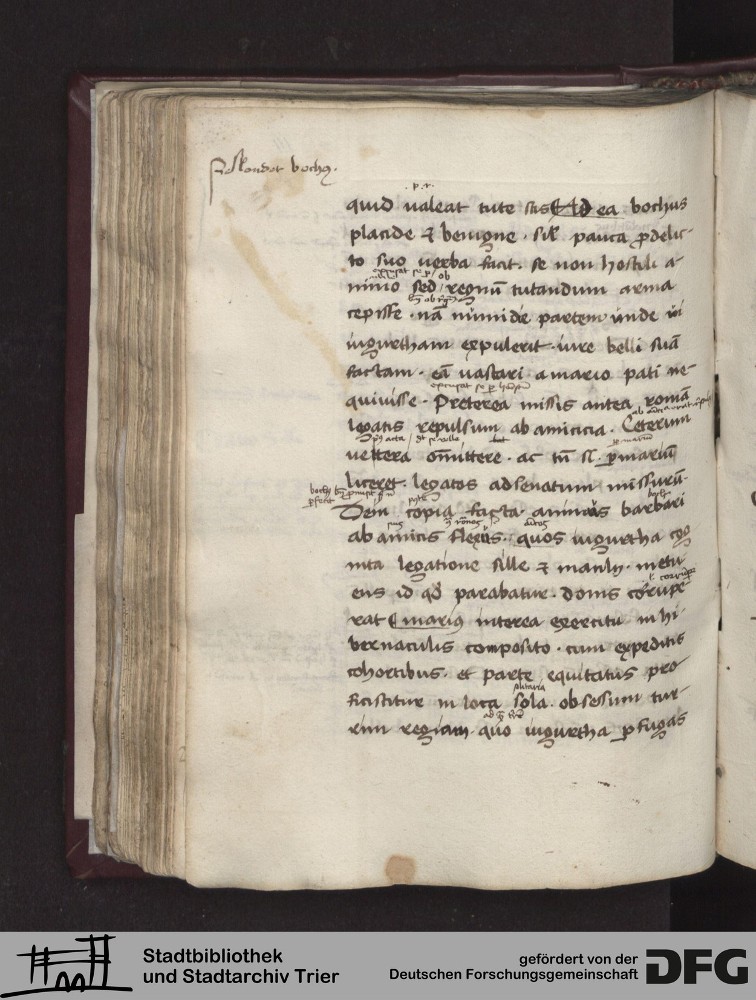 Respondet bochus.
.p.r.
quid valeat tute scis Ad ea bochus
placide et benigne. simul pauca pro delic-
to suo verba facit. se non hostili a-
excusat se
nimo sed regnum tutandum arma
cepisse. nam numidie partem unde ui
iugurtham expulerit. iure belli suam
factam. eam uastari a mario pati ne-
excusat se
quiuisse. Preterea missis antea romam
legatis repulsum ab amicicia. Ceterum
vettera omittere. ac tum si per marium
liceret. legatos ad senatum missurum.
Dein copia facta. animus barbari
ab amicis flexus. quos iugurtha cog-
nita legatione sille et manlij. metu-
ens id quod parabatur. donis corrupe-
rat marius interea exercitu in hi-
bernaculis composito. cum expeditis
cohortibus. et parte equitatus pro-
ficistitur in loca sola. obsessum tur-
rim regiam. quo iugurtha perfugas
Stadtbibliothek
und Stadtarchiv Trier
gefördert von der
Deutschen Forschungsgemeinschaft
DFG